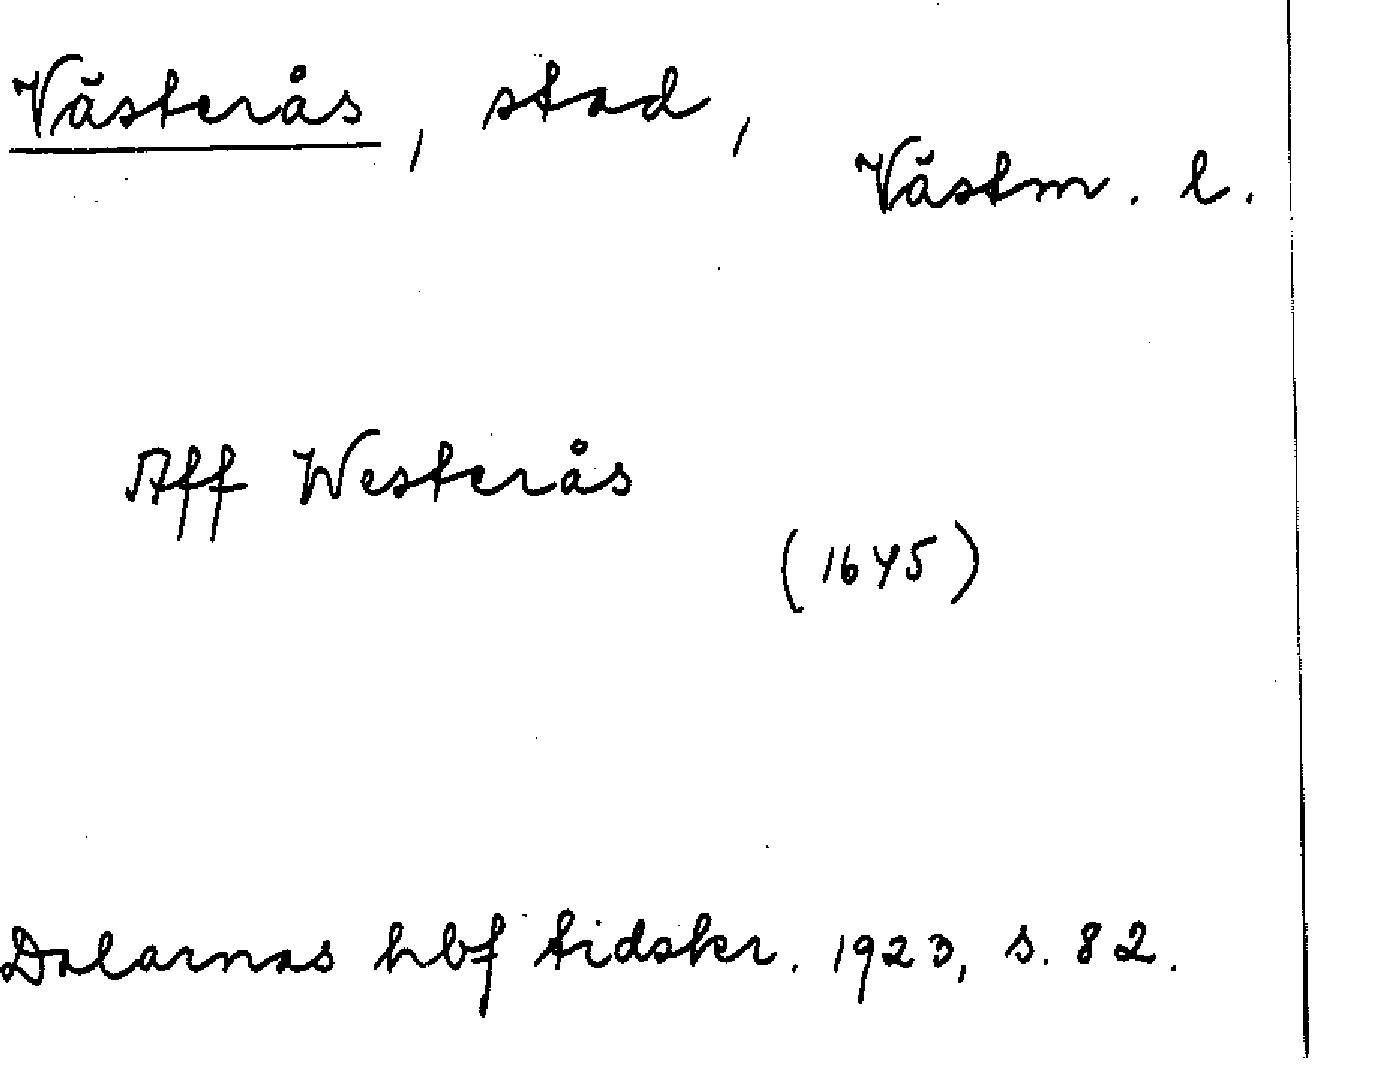 Västerås, stad,
Västm. l.
Aff Westerås
(1645)
Dalarnas hbf tidskr. 1923, s. 82.